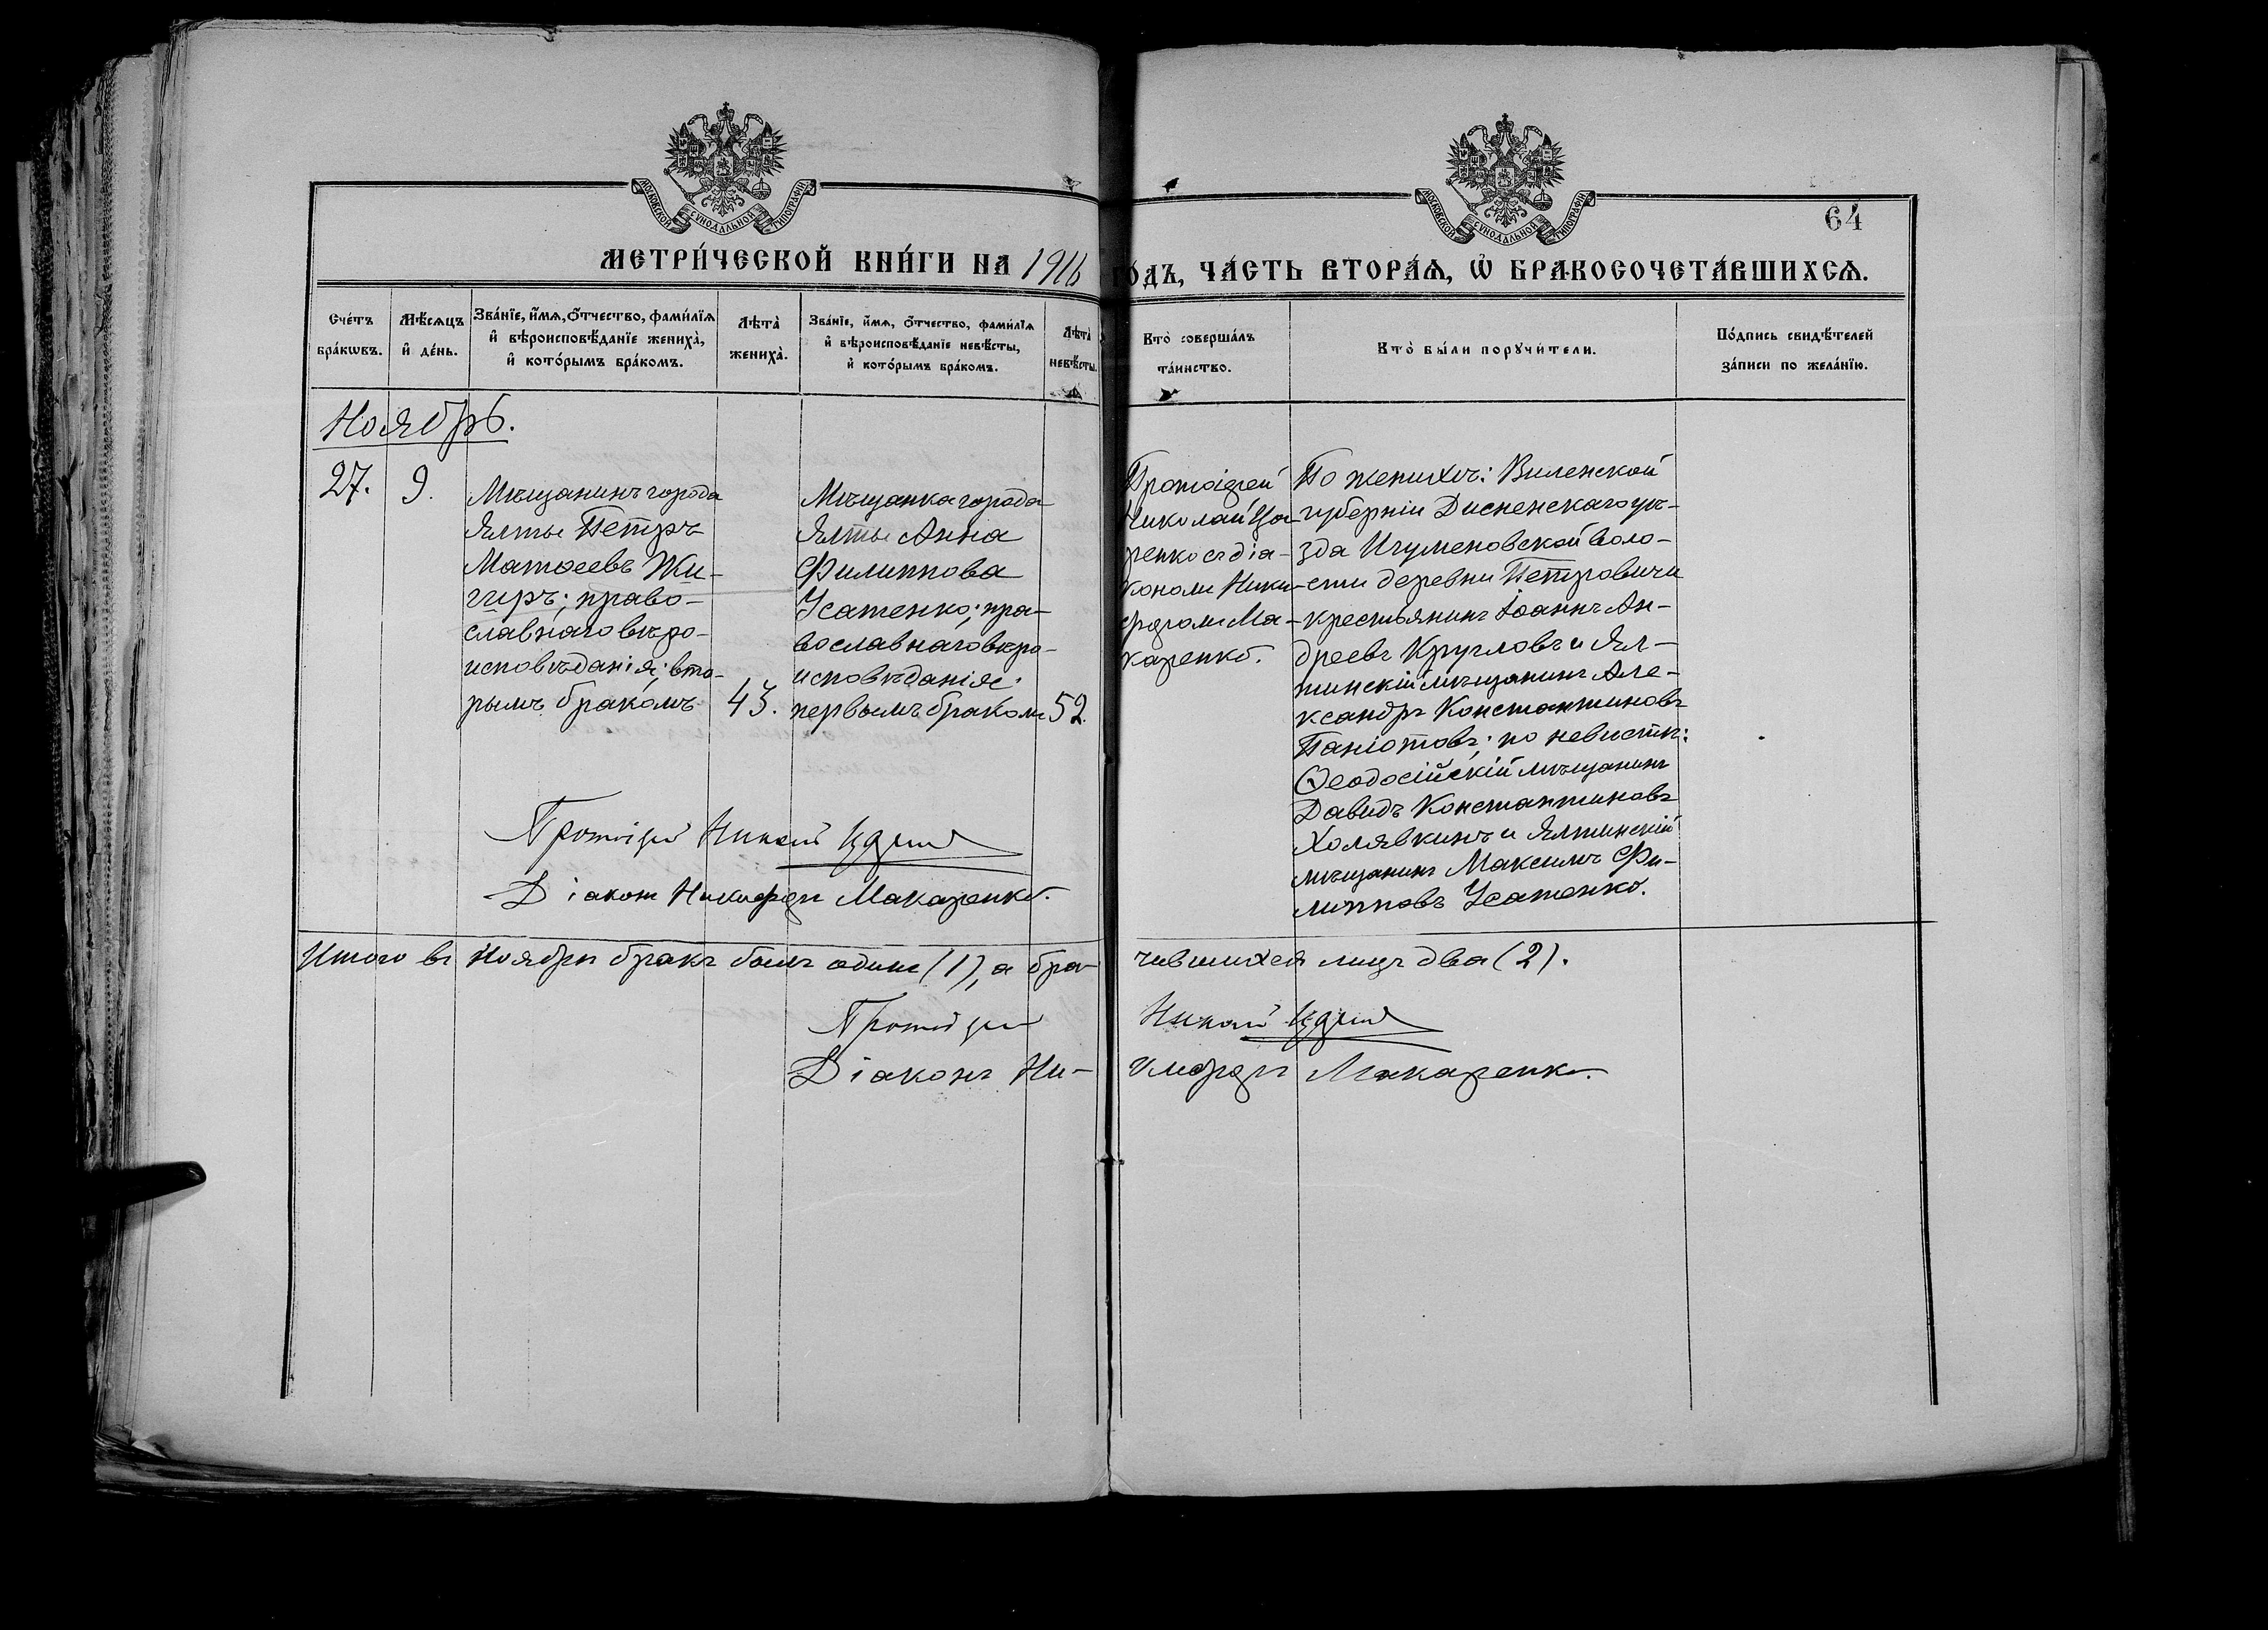 МОСКОВСКОЙ СУНОДАЛЬНОЙ ТИПОГРАФІИ
МОСКОВСКОЙ СУНОДАЛЬНОЙ ТИПОГРАФІИ
64
МЕТРИ́ЧЕСКОЙ КНИ́ГИ НА 1916 ГО́ДЪ, ЧА́СТЬ ВТОРА́Ѧ, Ѿ БРАКОСОЧЕТА́ВШИХСѦ.
Сче́тъ бра́кѡвъ.
Мѣ́сѧцъ и҆ де́нь.
Зва́нїе, и҆́мѧ, ѻ҆́тчество, фами́лїѧ и҆ вѣроисповѣ́данїе жениха̀, и҆ кото́рымъ бра́комъ.
Лѣта̀ жениха̀.
Зва́нїе, и҆́мѧ, ѻ҆́тчество, фами́лїѧ и҆ вѣроисповѣ́данїе невѣ́сты, и҆ кото́рымъ бра́комъ.
Лѣта̀ невѣ́сты.
Кто̀ соверша́лъ та́инство.
Кто̀ бы́ли порꙋчи́тели.
По́дпись свидѣ́телей за́писи по жела́нїю.
Ноябрь.
27.
9.
Мѣщанинъ города
Ялты Петръ
Матѳеевъ Жи-
гирь; право-
славнаго вѣро-
исповѣданія; вто-
рымъ бракомъ
43.
Мѣщанка города
Ялты Анна
Филиппова
Усатенко; пра-
вославнаго вѣро-
исповѣданія;
первымъ бракомъ
52.
Протоіерей
Николай Ца-
ренко съ діа-
кономъ Ники-
форомъ Ма-
каренко.
По женихѣ: Виленской
губерніи Дисненскаго уѣ-
зда Игуменовской воло-
сти деревни Петровичи
крестьянинъ Іоаннъ Ан-
дреевъ Кругловъ и Ял-
тинскій мѣщанинъ Але-
ксандръ Константиновъ
Паніотовъ; по невѣстѣ:
Ѳеодосійскій мѣщанинъ
Давидъ Константиновъ
Холявкинъ и Ялтинскій
мѣщанинъ Максимъ Фи-
липповъ Усатенко.
Протоіерей Николай
Діаконъ Никифоръ Макаренко.
Итого въ Ноябрѣ бракъ былъ одинъ (1), а бра-
чившихся лицъ два (2).
Протоіерей Николай
Діаконъ Ни-кифоръ Макаренко.